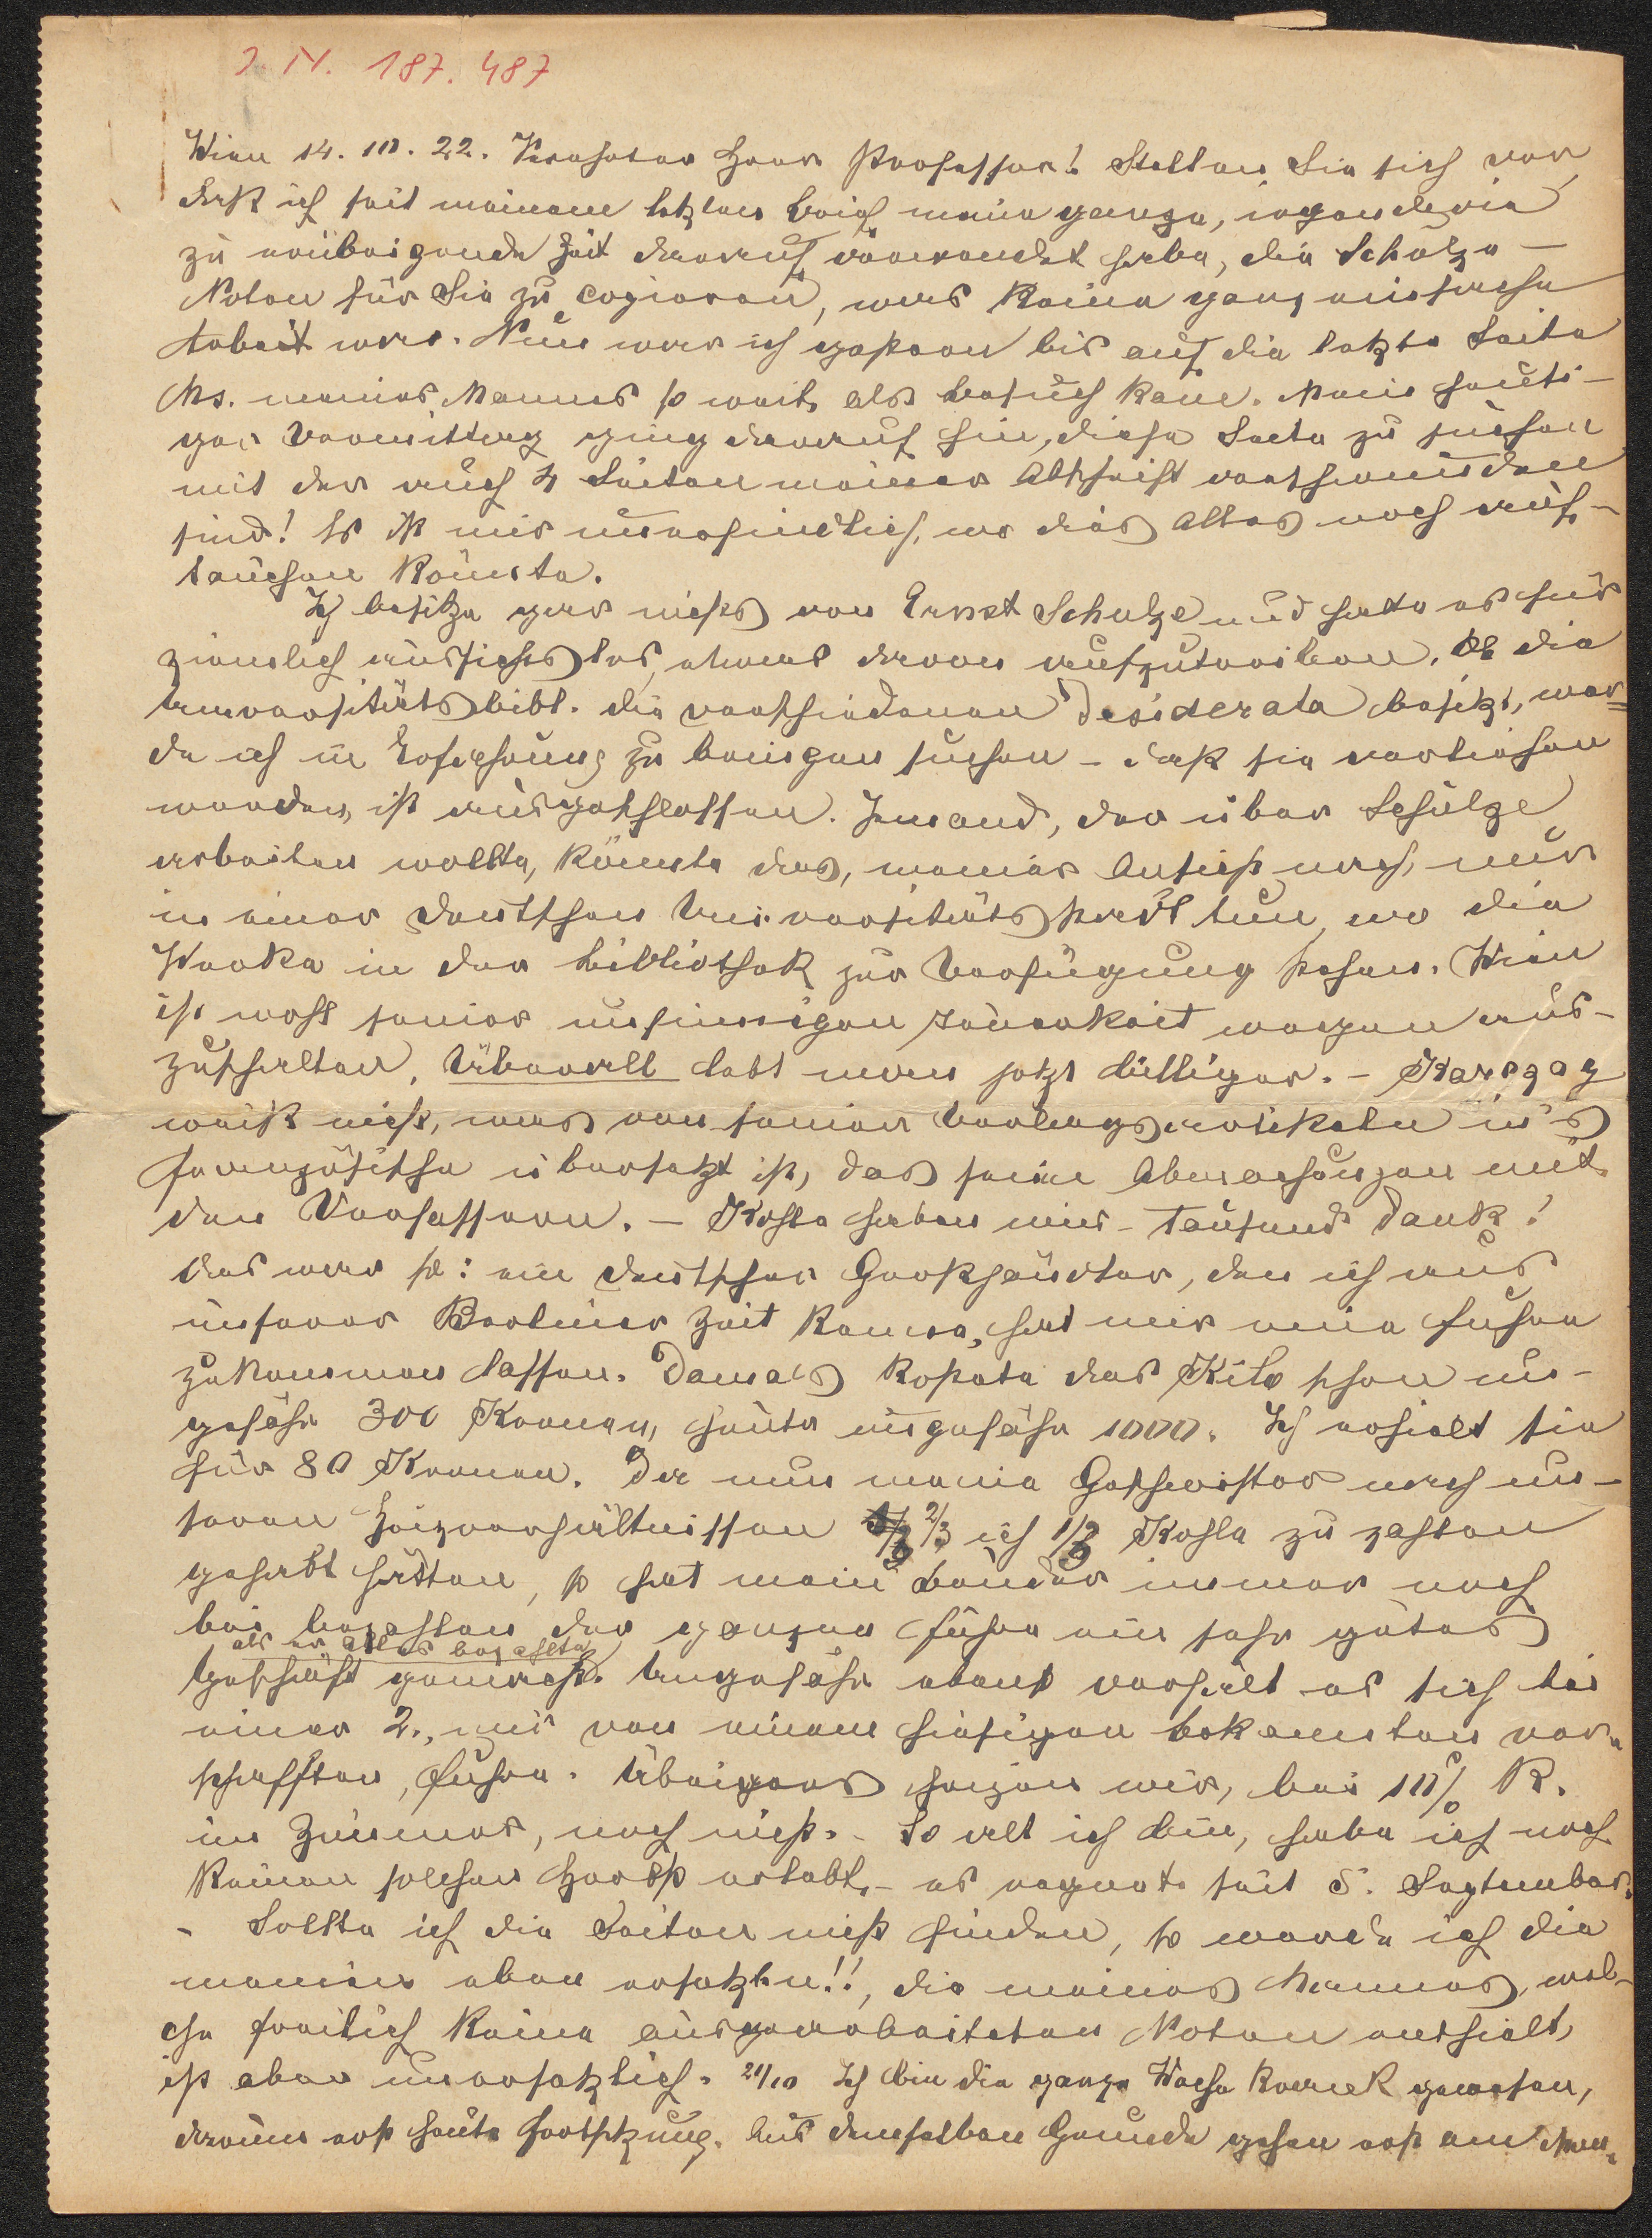 I. N. 187.487
Wien 14. 10. 22. Verehrter Herr Professor! Stellen Sie sich vor,
daß ich seit meinem letzten Brief meine ganze, irgendwie
zu erübrigende Zeit darauf verwendet habe, die Schulze-
Noten für Sie zu copieren, was keine ganz einfache
Arbeit war. Nun war ich gestern bis auf die letzte Seite
Ms. meines Mannes so weit, als Besuch kam. Mein heuti-
ger Vormittag ging darauf hin, diese Seite zu suchen
mit der auch 4 Seiten meiner Abschrift verschwunden
sind! Es ist mir unerfindlich, wo dies Alles noch auf-
tauchen könnte.
Ich besitze gar nichts von Ernst Schulze und halte es für
ziemlich aussichtslos, etwas davon aufzutreiben. Ob die
Universitätsbibl. die verschiedenen Desiderata besitzt, wer-
de ich in Erfahrung zu bringen suchen – daß sie verliehen
werden, ist ausgeschlossen. Jemand, der über Schulze
arbeiten wollte, könnte das, meiner Ansicht nach, nur
in einer deutschen Universitätsstadt tun, wo die
Werke in der Bibliothek zur Verfügung stehen. Wien
ist wohl seiner unsinnigen Teuerkeit wegen aus-
zuschalten. Überall lebt man jetzt billiger. – Karczag
weiß nicht, was von seinen Verlagsartikeln in's
Französische übersetzt ist, das seien Abmachungen mit
den Verfassern. – Kohle haben wir – tausend Dank!
Das war so: ein deutscher Großhändler, den ich aus
unserer Berliner Zeit kenne, hat mir eine Fuhre
zukommen lassen. Damals kostete das Kilo schon un-
gefähr 300 Kronen, heute ungefähr 1000. Ich erhielt sie
für 80 Kronen. Da nun meine Geschwister nach un-
seren Heizverhältnissen 2/3 ich 1/3 Kohle zu zahlen
gehabt hätten, so hat mein Bruder immer noch
bei bezahlen der ganzen Fuhre ein sehr gutes
als er alles bezahlte
Geschäft gemacht. Ungefähr ebenso verhielt es sich bei
einer 2., mir von einem hiesigen Bekannten ver-
schafften, Fuhre. Übrigens heizen wir, bei 10% R.
im Zimmer, noch nicht. – So alt ich bin, habe ich noch
keinen solchen Herbst erlebt, – es regnete seit 5. September.
– Sollte ich die Seiten nicht finden, so werde ich die
meinen eben ersetzen!!, die meines Mannes, wel-
che freilich keine ausgearbeiteten Noten enthielt,
ist aber unersetzlich. 21/10 Ich bin die ganze Woche krank gewesen,
darum erst heute Fortsetzung. Aus demselben Grunde gehen erst am